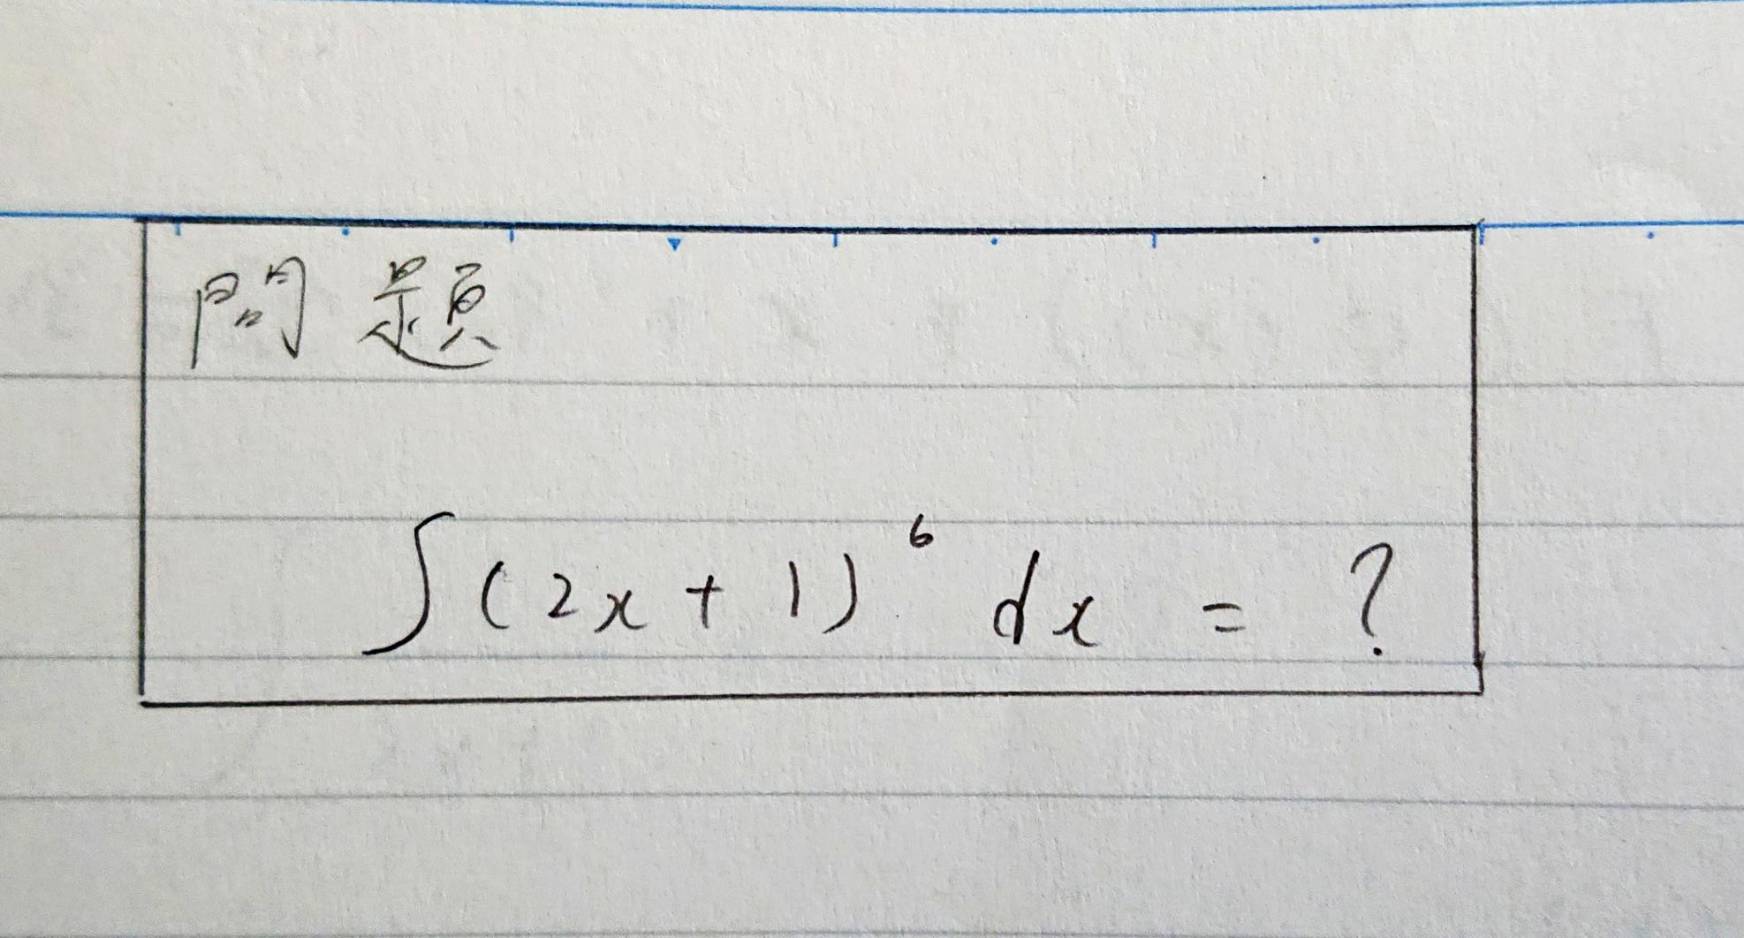 問題
∫(2x+1)⁶ dx = ?